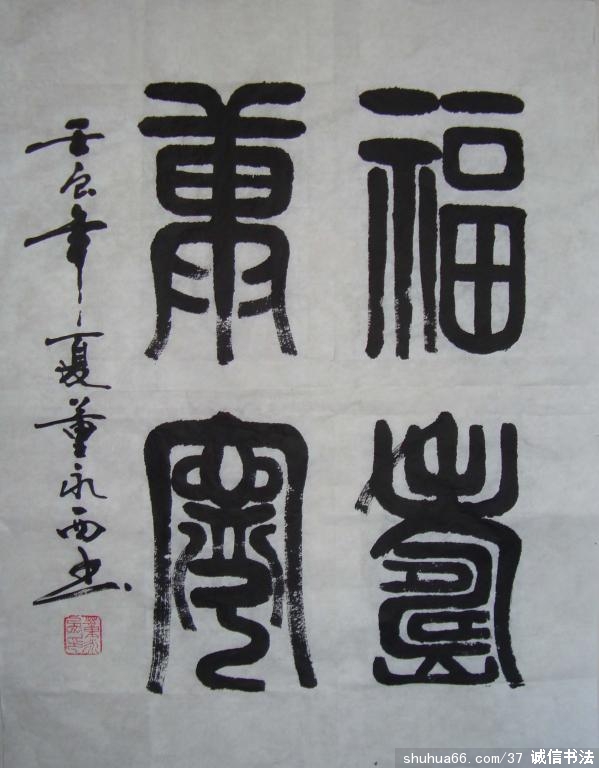 福壽
康寧
壬辰年夏董永西书
shuhua66.com/37 诚信书法